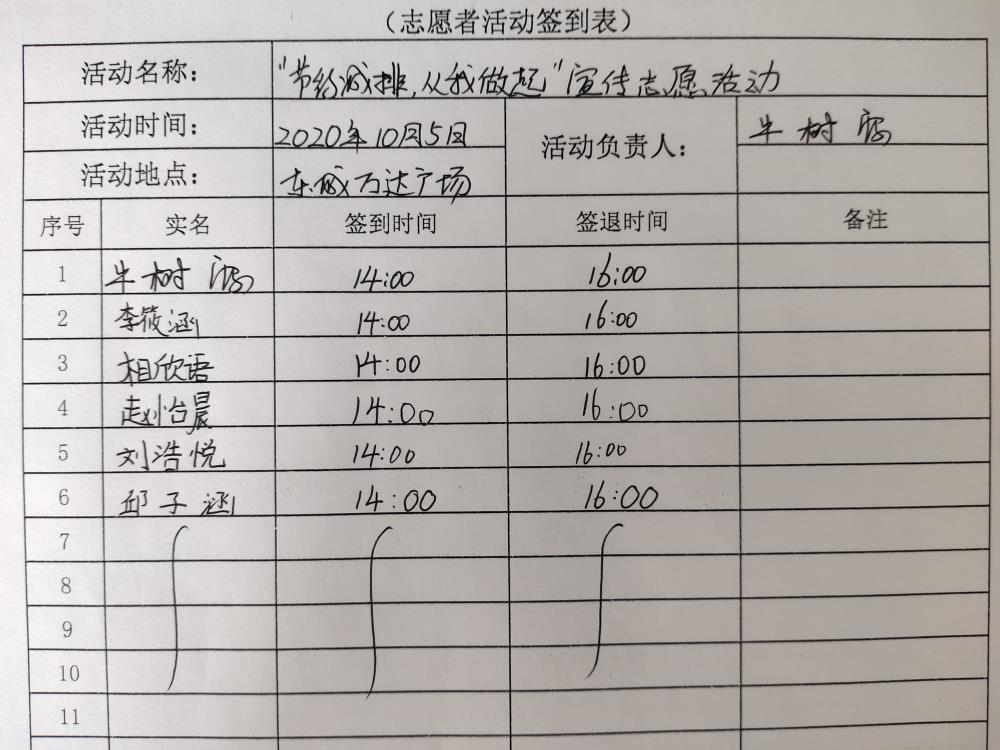 （志愿者活动签到表）
活动名称： “节约减排，从我做起”宣传志愿活动
活动时间： 2020年10月5日 活动负责人： 牛树
活动地点： 东城万达广场
序号 实名 签到时间 签退时间 备注
1 牛树 14:00 16:00
2 李筱涵 14:00 16:00
3 相欣语 14:00 16:00
4 赵刘怡晨 14:00 16:00
5 刘浩悦 14:00 16:00
6 邱子涵 14:00 16:00
7
8
9
10
11